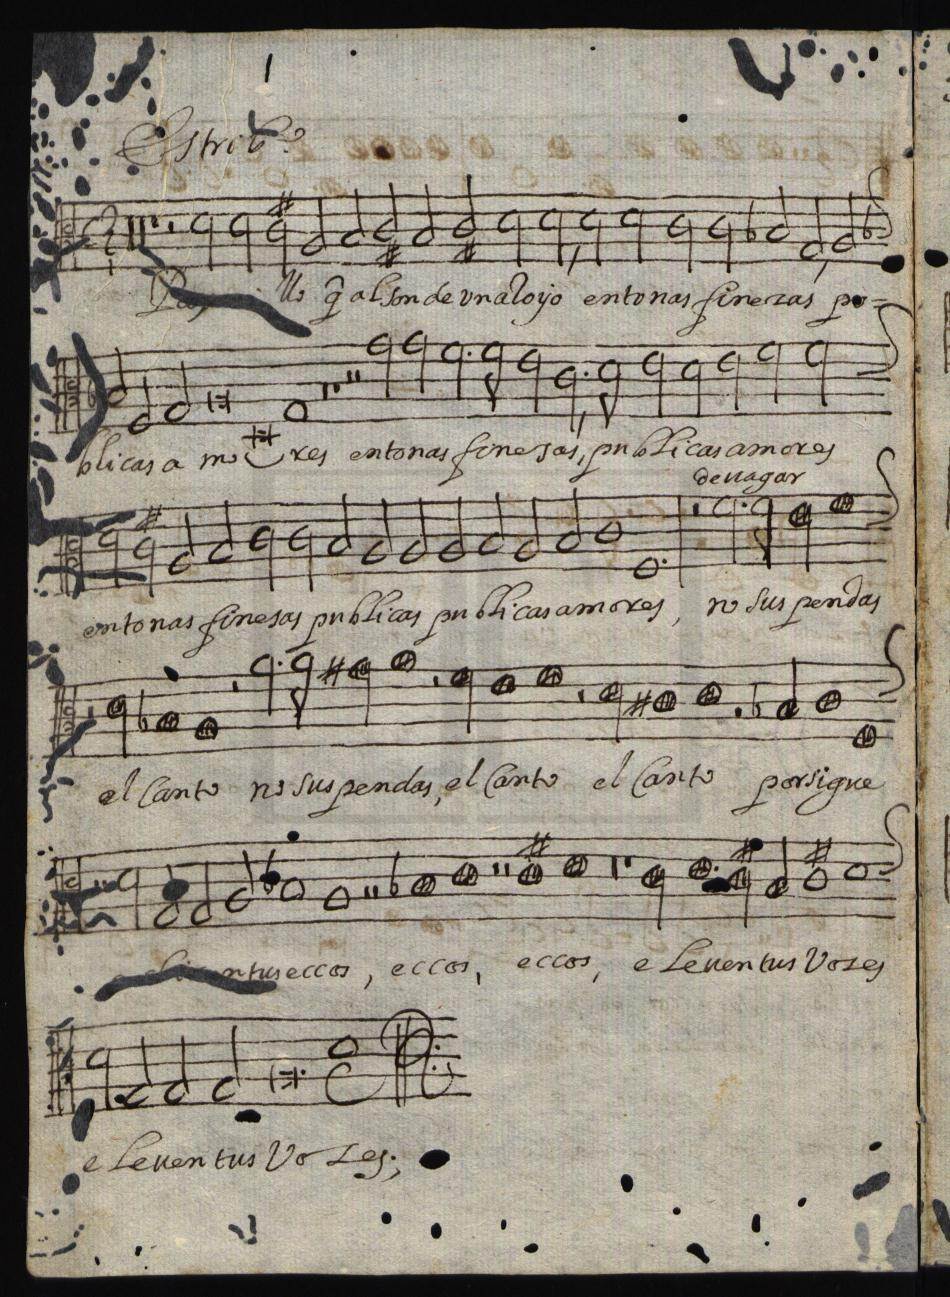 Estribº
q̃ al son de un aloyo entonas finezas pu=
blicas a mo res entonas finesas, publicas amores
de uagar
entonas finesas publicas publicas amores, no suspendas
el Canto no suspendas, el Canto el Canto porsigue
eccos, eccos, eccos, e leuen tus Vozes
e leuen tus Vo zes;